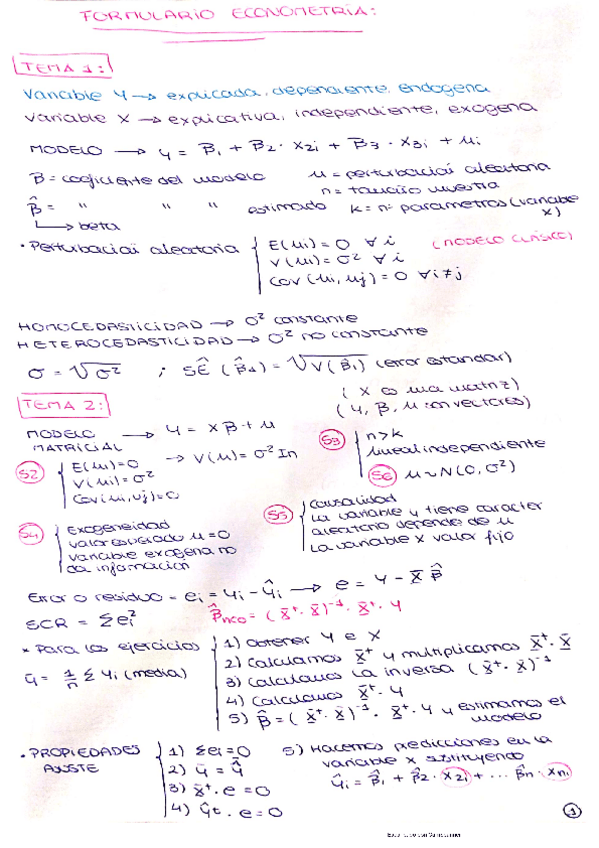 FORMULARIO ECONOMETRÍA:
TEMA 1:
Variable Y → explicada, dependiente, endogena
Variable X → explicativa, independiente, exogena
MODELO → y = β1 + β2 · x2i + β3 · x3i + ui
β = coeficiente del modelo u = perturbación aleatoria
n = tamaño muestra
β̂ = " " " estimado k = nº parametros (variable x)
↳ beta
· Perturbación aleatoria { E(ui) = 0 ∀i (MODELO CLÁSICO)
V(ui) = σ² ∀i
Cov(ui, uj) = 0 ∀i≠j
HOMOCEDASTICIDAD → σ² constante
HETEROCEDASTICIDAD → σ² no constante
σ = √σ² ; SÊ (β̂1) = √V(β̂1) (error estandar)
(X es una matriz)
(Y, β, u son vectores)
TEMA 2:
MODELO MATRICIAL → Y = Xβ + u
S2 { E(ui)=0 → V(u) = σ² In
V(ui) = σ²
Cov(ui, uj)=0
S3 { n>k
lineal independiente
S6 u ~ N(0, σ²)
S4 { Exogeneidad
valor esperado u = 0
variable exogena no
da información
S5 { Causalidad
La variable y tiene caracter
aleatorio depende de u
La variable X valor fijo
Error o residuo = ei = yi - ŷi → e = Y - X β̂
ECR = Σei² β̂mco = (Xᵗ · X)⁻¹ · Xᵗ · Y
* Para los ejercicios { 1) Obtener Y e X
2) Calculamos Xᵗ y multiplicamos Xᵗ · X
ȳ = 1/n Σ yi (media) 3) Calculamos la inversa (Xᵗ · X)⁻¹
4) Calculamos Xᵗ · Y
5) β̂ = (Xᵗ · X)⁻¹ · Xᵗ · Y y estimamos el modelo
· PROPIEDADES AJUSTE { 1) Σei = 0
2) ȳ = ŷ
3) Xᵗ · e = 0
4) ŷt · e = 0
5) Hacemos predicciones en la
variable x sustituyendo
ŷi = β̂1 + β̂2 · x2i + ... β̂n · xni
1